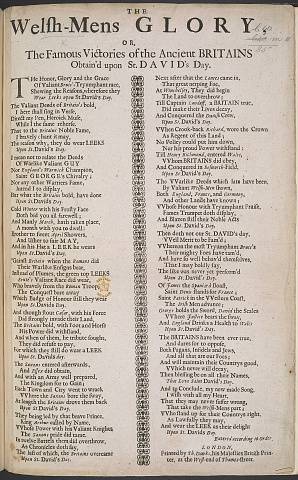 THE
Welsh-Mens GLORY
OR,
The Famous Victories of the Ancient BRITAINS
Obtain'd upon St. DAVID's Day.
THe Honor, Glory and the Grace
Of Valiant Brute's Tryumphant race,
Shewing the Reason, wherefore they
Wear Leeks upon St. Davids Day.
The Valiant Deeds of Britain's bold,
I here shall sing in Verse,
Assist my Pen, Heroick Muse,
While I the same reherse,
That to the Britains Noble Fame,
I bravely chant it may,
The reason why, they do wear LEEKS
Upon St. David's Day.
I mean not to relate the Deeds
Of Warlike Valiant GUY
Nor England's Warwick Champion,
Saint GEORGE's Chivalry;
Nor any other Warriers Fame,
Intend I to display,
But what the Britains bold, have done
Upon St. Davids Day.
Cold Winter with his Frosty Face
Doth bid you all farewell;
And Manly March, hath taken place,
A month with you to dwell:
Brother to sweet April Showers,
And Usher to fair MAY,
And in his Hat a LEEK he wears
Upon St. Davids Day.
Against Britain when the Romans did
Their Warlike Ensigns bear,
Instead of Plumes, the green top LEEKS
Brute's Valiant Race did wear,
Who bravely from the Roman Troops
The Conquest bore away
Which Badge of Honour still they wear
Upon St. Davids Day.
And though stout Cæsar, with his Force
Did strongly invade their Land,
The Britains bold, with Foot and Horse
His Power did withstand,
And when of them, he tribute sought,
They did refuse to pay,
For which they still do wear a LEEK
Upon St. Davids day.
The Saxons entered afterwards,
And Issue did obtain,
And with an Army well prepared,
The Kingdom for to Gain;
Each Town and City went to wrack
VVhere the Saxons bore the sway,
At length the Britains drove them back
Upon St. David's Day.
They being led by that brave Prince,
King Arthur called by Name,
VVhose Power with his Valiant Knights,
The Saxons pride did tame.
In twelve Battels them did overthrow,
As Chronicles doth say,
The last of which, the Britains overcame
Upon St. Davids Day.
Next after that the Danes came in,
That great usurping Foe,
At Winchester, They did begin
The Land to overthrow;
Till Captain a BRITAIN true,
Did make their Lives decay,
And Conquered the Danish Crew,
Upon St. Davids Day.
VVhen Crook-back Richard, wore the Crown
As Regent of this Land;
No Policy could put him down,
Nor his proud Power withstand:
Till Henry Richmond, entered in,
VVhom BRITAINS did obey,
And Conquered in Bosworth-Field,
Upon St. Davids Day.
The VV'arlike Deeds which have been,
By Valiant Welsh-Men shown,
Both England, France, and Germany,
And other Lands have known
VVhose Honour with Tryumphant Praise,
Fames Trumpet doth display,
And Blazen still their Noble Acts
Upon St. David's Day.
Then doth not our St. David's day,
VVell Merit to be fam'd;
Whereas the most Tryumphant Brute's
Their mighty Foes have tam'd,
And have so well behav'd themselves,
That I may boldly say,
The like was never yet perform'd
Upon St. Davids Day.
Of James the Spanish dead,
Saint Denis stands for France;
Saint Patrick in the VVelkins Coast,
The Irish Men advance;
George holds the Sword, David the Scales
VVhere Justice bears the sway,
And England Drinks a Health to Wales
Upon St. Davids Day.
The BRITAINS have been ever true,
And dares for to oppose,
Both Pagans, Infidels and Jews,
And all that are our Foes;
And will maintain their Countrys good
VVhich never will decay,
Then blessing be on all their Names,
That Love Saint David's Day.
And to Conclude, my new made Song,
I wish with all my Heart,
That they may never suffer wrong,
That take the Welsh-Men's part;
VVho stand up for their Countrys right,
As Lawfully they may,
And wear the LEEK in their delight
Upon St. Davids Day.
Entered according to Order.
LONDON,
Printed by
at the West-end of Thames-street.